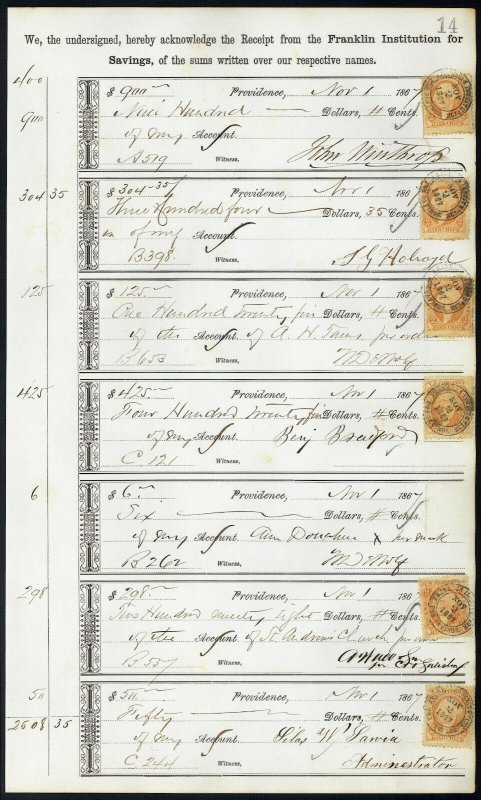 14
We, the undersigned, hereby acknowledge the Receipt from the Franklin Institution for
Savings, of the sums written over our respective names.
400
900
$ 900 Providence, Nov 1 1867
Nine Hundred Dollars, # Cents.
of my Account.
A519 Witness, John Winthrop
304 35
$ 304-35 Providence, Nov 1 1867
Three Hundred four Dollars, 35 Cents.
of my Account.
B398 Witness, S G Holroyd
125
$ 125. Providence, Nov 1 1867
One Hundred twenty five Dollars, # Cents.
of the Account. of A. H. per order
B653 Witness,
425
$ 425. Providence, Nov 1 1867
Four Hundred twenty five Dollars, # Cents.
of my Account. Benj Bradford
C 121 Witness,
6
$ 6 Providence, Nov 1 1867
Six Dollars, # Cents.
of my Account. Ann Donahue X her mark
B 262 Witness,
298
$ 298. Providence, Nov 1 1867
Two Hundred ninety eight Dollars, # Cents.
of the Account. of St Andrews Church per order
B557 Witness,
50
$ 50 Providence, Nov 1 1867
Fifty Dollars, # Cents.
of my Account. Silas
C 244 Witness, Administrator
2508 35